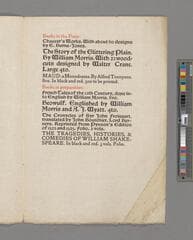 Books in the Press.
Chaucer's Works. With about 60 designs
by E. Burne-Jones.
The Story of the Glittering Plain.
By William Morris. With 23 wood-
cuts designed by Walter Crane.
Large 4to.
MAUD: a Monodrama. By Alfred Tennyson.
8vo. In black and red.
Books in preparation.
French Tales of the 13th Century, done in-
to English by William Morris.
Beowulf. Englished by William
Morris and A. J. Wyatt. 4to.
The Cronycles of Syr John Froissart,
translated by John Bourchier, Lord Ber-
ners. Reprinted from Pynson's Edition
of 1523 and 1525. Folio. 2 vols.
THE TRAGEDIES, HISTORIES, &
COMEDIES OF WILLIAM SHAKE-
SPEARE. In black and red. 3 vols. Folio.